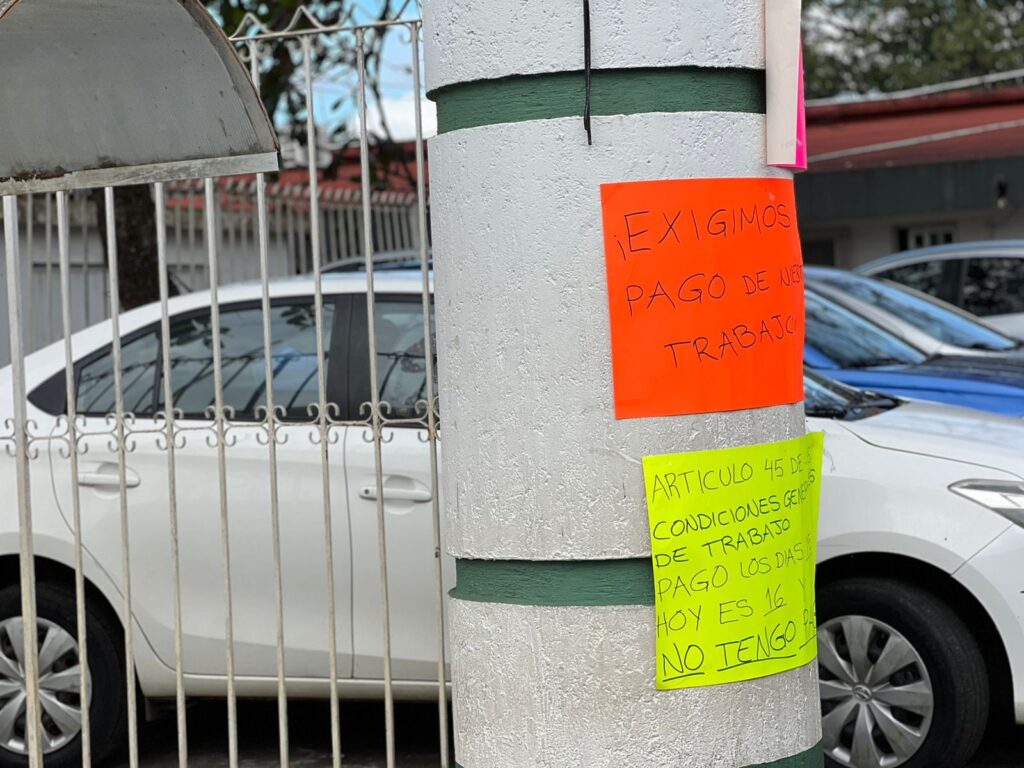 ¡EXIGIMOS
PAGO DE
TRABAJO
ARTICULO 45 DE
CONDICIONES
DE TRABAJO
PAGO LOS DIAS
HOY ES 16 Y
NO TENGO